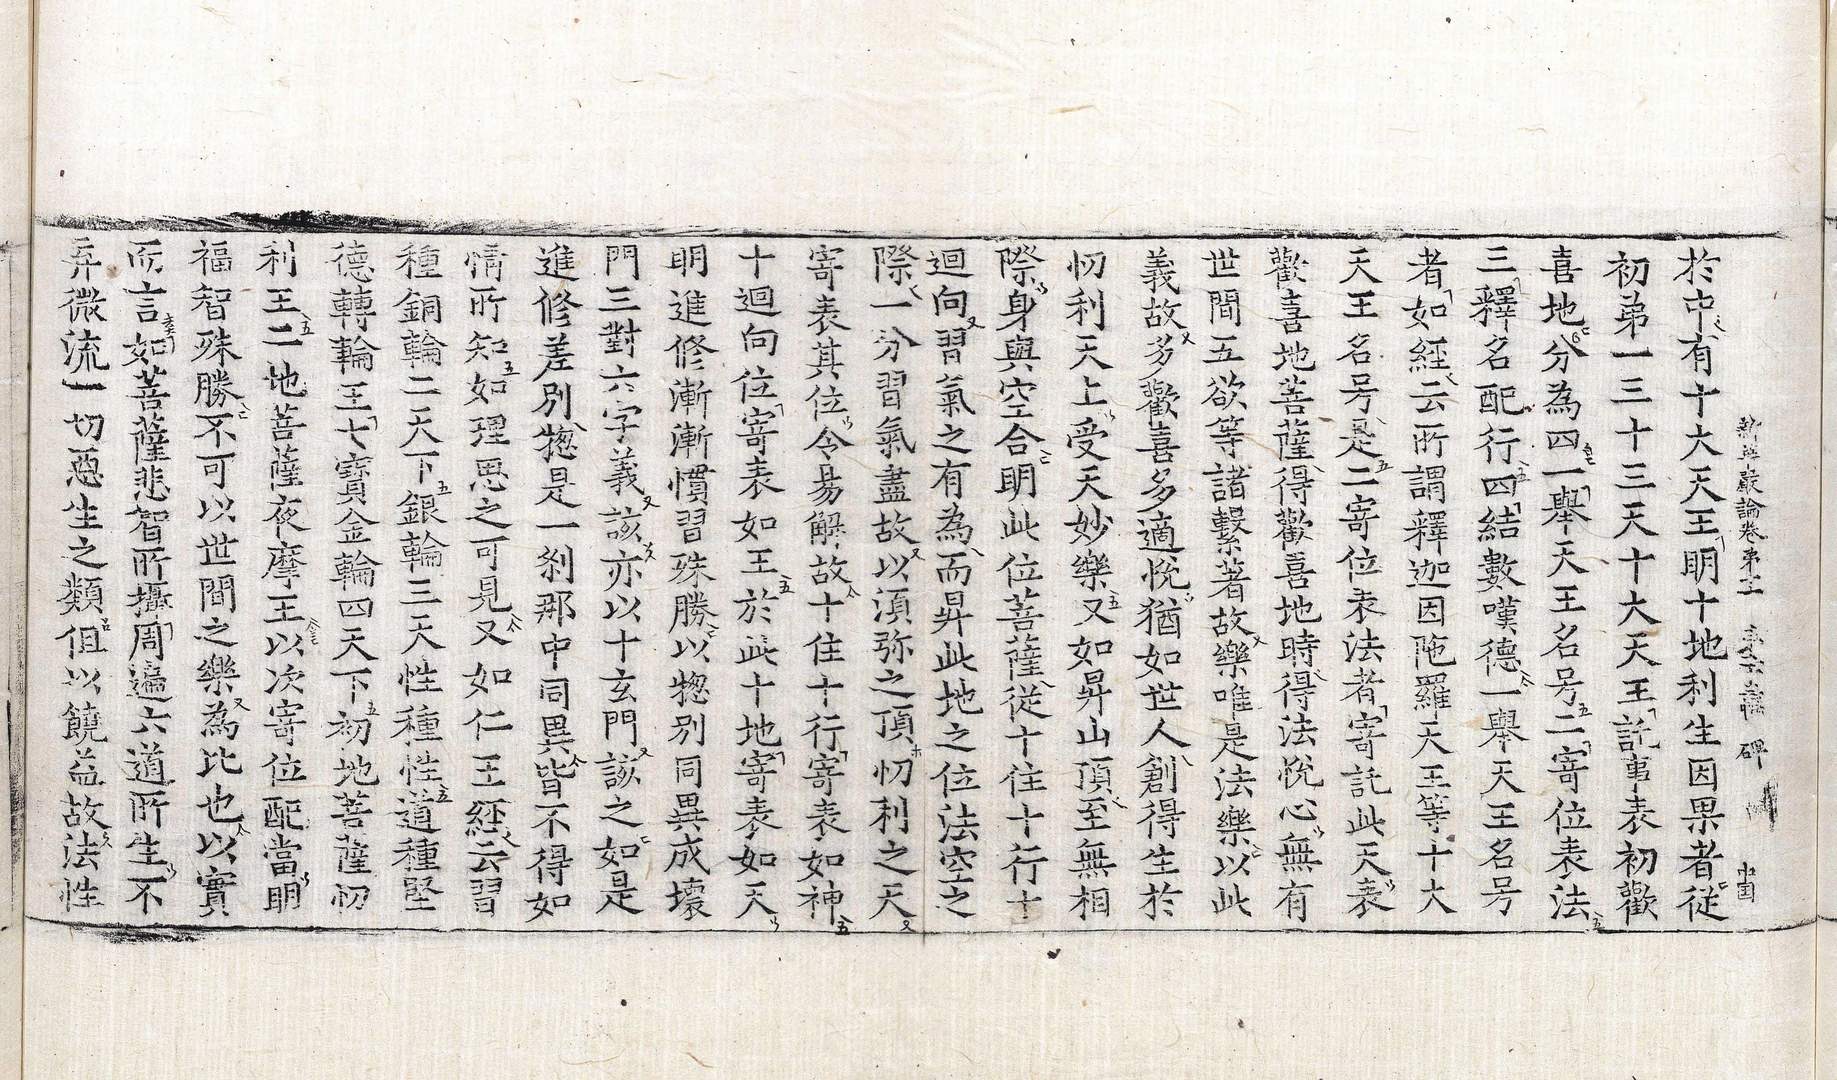 新華嚴論卷第十二
於中有十大天王明十地利生因果者從
初弟一三十三天十大天王託事表初歡
喜地分為四一舉天王名号二寄位表法
三釋名配行四結數嘆德一舉天王名号
者如經云所謂釋迦因陁羅天王等十大
天王名号是二寄位表法者寄託此天表
歡喜地菩薩得歡喜地時得法悅心無有
世間五欲等諸繫著故樂唯是法樂以此
義故多歡喜多適悅猶如世人創得生於
忉利天上受天妙樂又如昇山頂至無相
際身與空合明此位菩薩從十住十行十
迴向習氣之有為而昇此地之位法空之
際一分習氣盡故以須弥之頂忉利之天
寄表其位令易解故十住十行寄表如神
十迴向位寄表如王於此十地寄表如天
明進修漸漸慣習殊勝以揔別同異成壞
門三對六字義該亦以十玄門該之如是
進修差別揔是一剎那中同異皆不得如
情所知如理思之可見又如仁王經云習
種銅輪二天下銀輪三天性種性道種堅
德轉輪王七寶金輪四天下初地菩薩忉
利王二地菩薩夜摩王以次寄位配當明
福智殊勝不可以世間之樂為比也以實
而言如菩薩悲智所攝周遍六道所生不
弃微流一切惡生之類但以饒益故法性